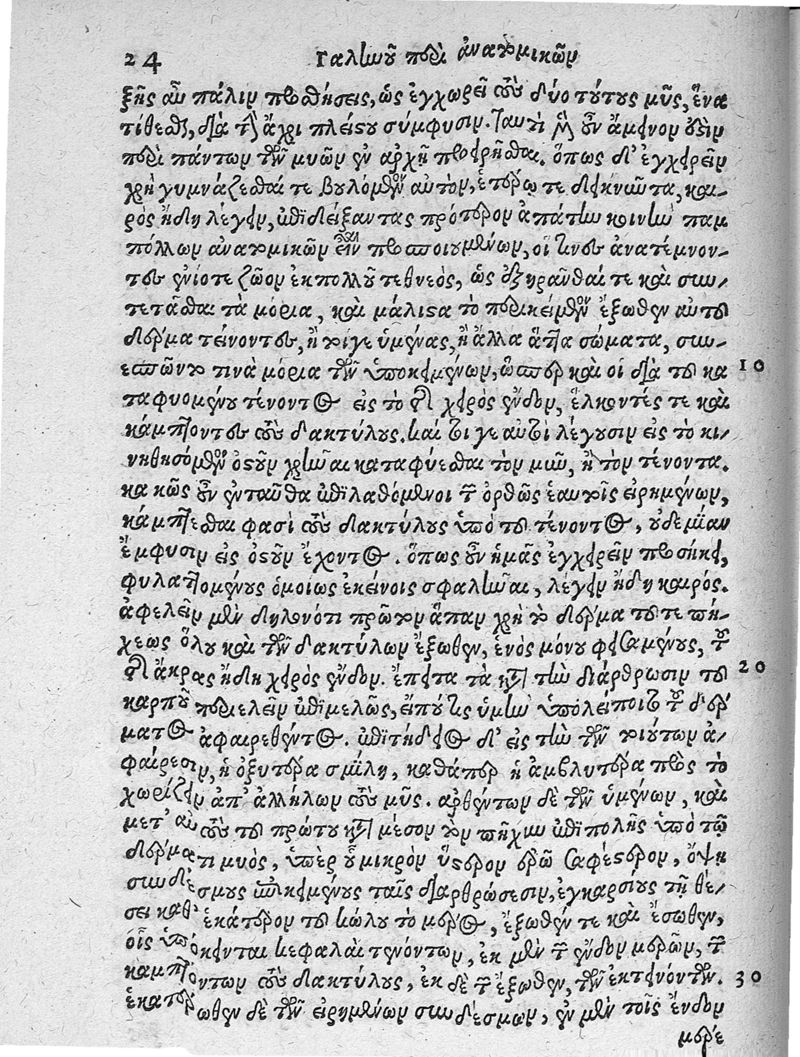 24 Γαληνοῦ περὶ ἀνατομικῶν
ξῆς αὖ πάλιν προσθήσεις, ὡς ἐγχωρεῖ τοὺς δύο τούτους μῦς, ἕνα
τίθεσθαι, διὰ τὴν ἄχρι πλείστου σύμφυσιν. Ταυτὶ μὲν οὖν ἄμεινον
περὶ πάντων τῶν μυῶν ἐν ἀρχῇ προειρῆσθαι. ὅπως δ' ἐγχειρεῖν
χρὴ γυμνάζεσθαί τε βουλόμενον αὐτὸν, ἑτέρῳ τε δεικνῦντα, και-
ρὸς ἤδη λέγειν, ἐπιδείξαντας πρότερον ἀπάτην κοινὴν παμ
πόλλων ἀνατομικῶν εἶναι προσποιουμένων, οἵτινες ἀνατέμνον-
τες ἐνίοτε ζῶον ἐκπολλοῦ τεθνεὸς, ὡς ἐξηράνθαι τε καὶ συν-
τετάσθαι τὰ μόρια, καὶ μάλιστα τὸ περικείμενον ἔξωθεν αὐτοῖς
δέρμα τείνοντες, ἤτοιγε ὑμένας, ἢ ἄλλα ἄττα σώματα, συν-
επισπῶνταί τινὰ μόρια τῶν ὑποκειμένων, ὥσπερ καὶ οἱ διὰ τοῦ κα 10
ταφυομένου τένοντος εἰς τὸ τῆς χειρὸς ἔνδον, ἕλκοντές τε καὶ
κάμπτοντες τοὺς δακτύλους. καί τοί γε αὐτοὶ λέγουσιν εἰς τὸ κι-
νηθησόμενον ὀστοῦν χρῆναι καταφύεσθαι τὸν μῦν, ἢ τὸν τένοντα.
κακῶς οὖν ἐνταῦθα ἐπιλαθόμενοι τῶν ὀρθῶς ἑαυτοῖς εἰρημένων,
κάμπτεσθαι φασὶ τοὺς δακτύλους ὑπὸ τοῦ τένοντος, οὐδεμίαν
ἔμφυσιν εἰς ὀστοῦν ἔχοντος. ὅπως οὖν ἡμᾶς ἐγχειρεῖν προσήκει,
φυλαττομένους ὁμοίως ἐκείνοις σφαλῆναι, λέγειν ἤδη καιρός.
ἀφελεῖν μὲν δηλονότι πρῶτον ἅπαν χρὴ τὸ δέρμα τοῦ τε πή-
χεως ὅλου καὶ τῶν δακτύλων ἔξωθεν, ἑνὸς μόνου φεισαμένους, τοῦ
τῆς ἄκρας ἤδη χειρὸς ἔνδον. ἔπειτα τὰ κατὰ τὴν διάρθρωσιν τοῦ 20
καρποῦ περιελεῖν ἐπιμελῶς, εἴπού τις ὑμὴν ὑπολείποιτο τοῦ δέρ
ματος ἀφαιρεθέντος. ἐπιτήδειος δ' εἰς τὴν τῶν τοιούτων ἀ-
φαίρεσιν, ἡ ὀξυτέρα σμίλη, καθάπερ ἡ ἀμβλυτέρα πρὸς τὸ
χωρίζειν ἀπ' ἀλλήλων τοὺς μῦς. ἀρθέντων δὲ τῶν ὑμένων, καὶ
μετ' αὐτοὺς τοῦ πρώτου κατὰ μέσον τὸν πῆχυν ἐπιπολῆς ὑπὸ τῷ
δέρματι μυὸς, ὑπὲρ οὗ μικρὸν ὕστερον ἐρῶ σαφέστερον, ὄψῃ
συνδέσμους ἐπικειμένους ταῖς διαρθρώσεσιν, ἐγκαρσίους τῇ θέ-
σει καθ' ἑκάτερον τοῦ κώλου τὸ μέρος, ἔξωθέν τε καὶ ἔσωθεν,
οἷς ὑπόκεινται κεφαλαὶ τενόντων, ἐκ μὲν τῶν ἔνδον μερῶν, τῶν
καμπτόντων τοὺς δακτύλους, ἐκ δὲ τῶν ἔξωθεν, τῶν ἐκτεινόντων. 30
ἑκατέρωθεν δὲ τῶν εἰρημένων συνδέσμων, ἐν μὲν τοῖς ἔνδον
μέρε